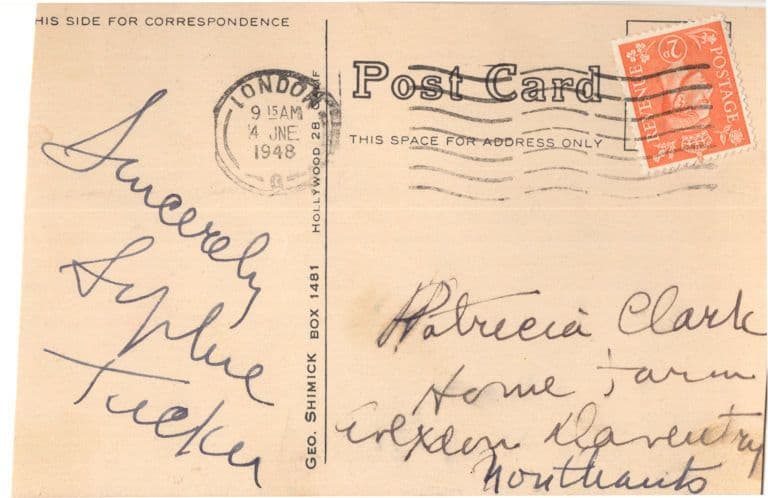 HIS SIDE FOR CORRESPONDENCE
Sincerely
Sophie
Tucker
LONDON
9 15AM
4 JNE
1948
GEO. SHIMICK BOX 1481 HOLLYWOOD 28
Post Card
THIS SPACE FOR ADDRESS ONLY
POSTAGE
2D
REVENUE
Patricia Clark
Home Farm
Daventry
Northants